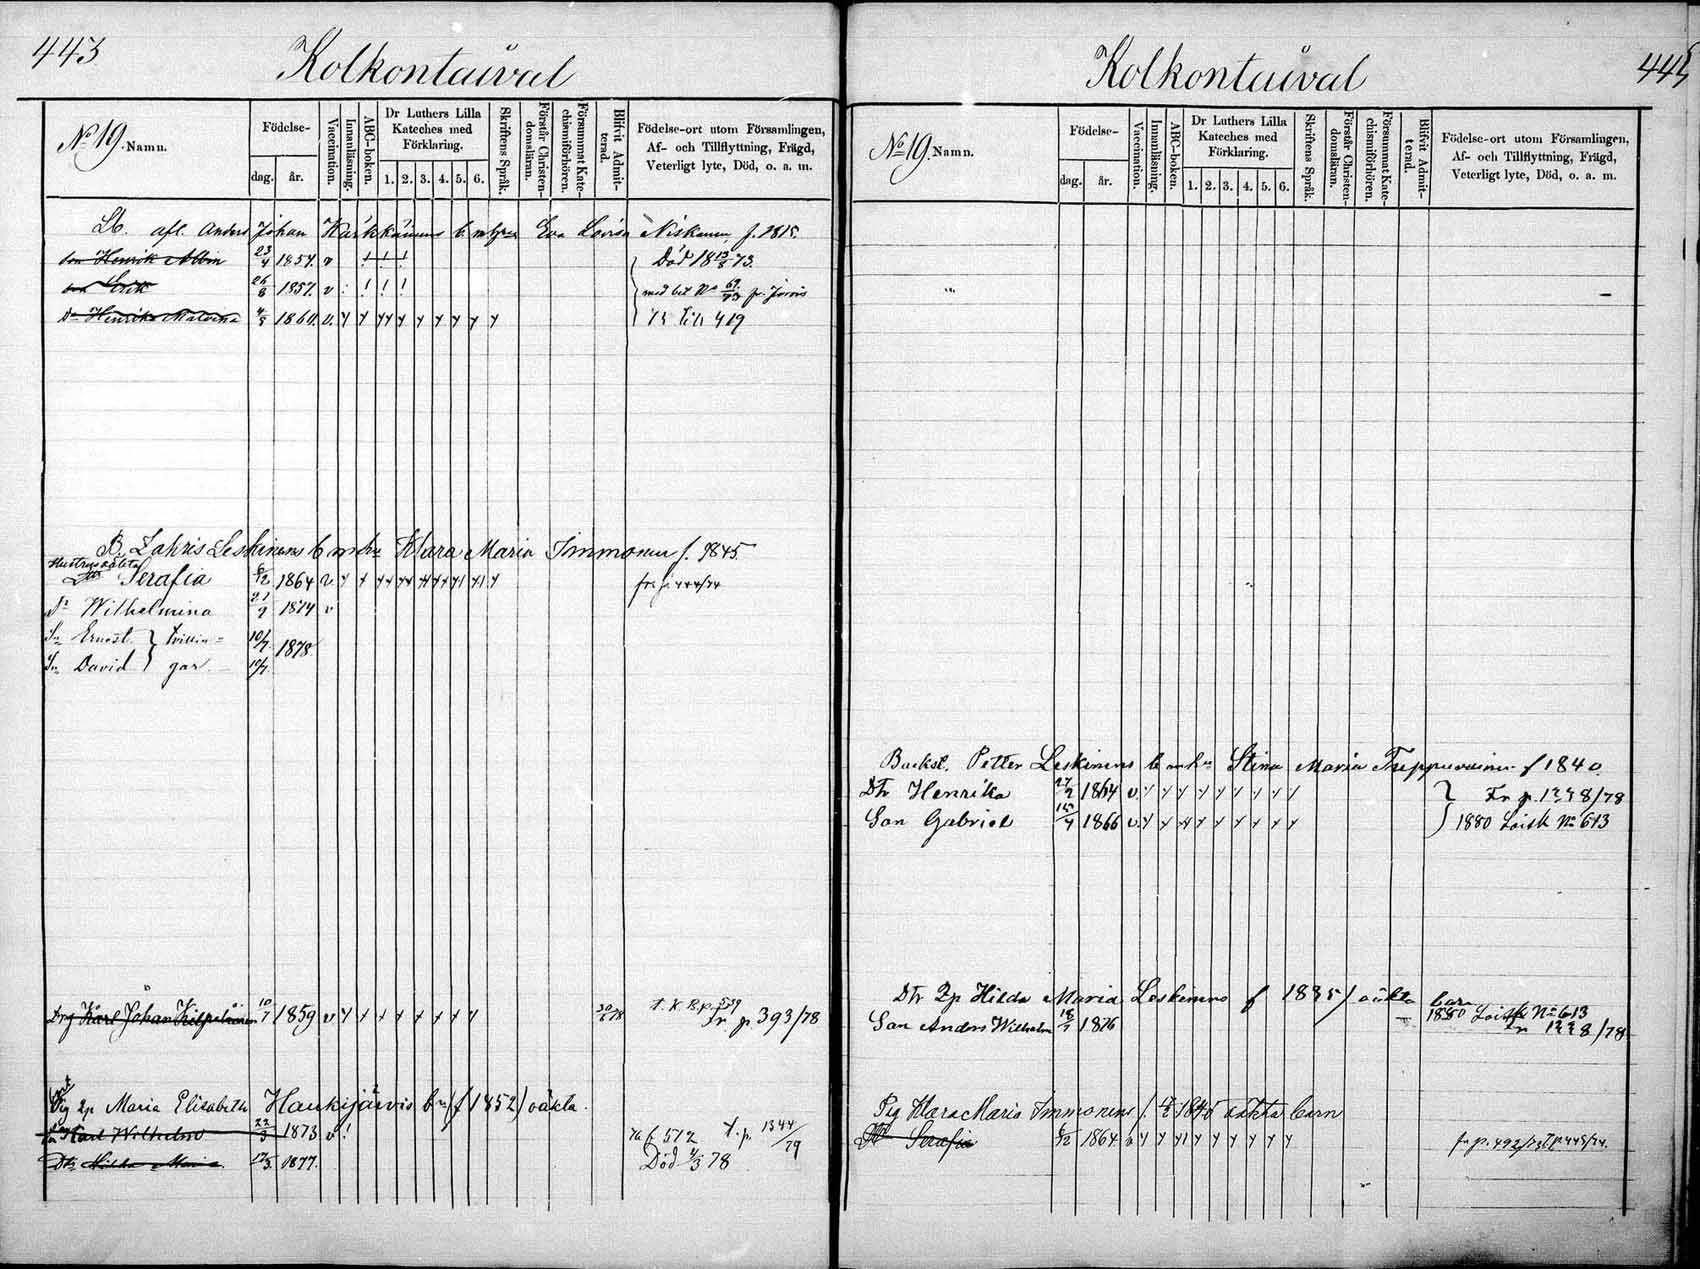 443
Kolkontaival
No 19. Namn.
Födelse-
dag.
år.
Vaccination.
Innanläsning.
ABC-boken.
Dr Luthers Lilla
Kateches med
Förklaring.
1. 2. 3. 4. 5. 6.
Skriftens Språk.
Förstår Christen-
domsläran.
Försummat Kate-
chismiförhören.
Blifvit Admit-
terad.
Födelse-ort utom Församlingen,
Af- och Tillflyttning, Frägd,
Veterligt lyte, Död, o. a. m.
afl. Anders Johan Kärkkäinens b. m hu Eva Lovisa Niskanen, f. 1815.
son Henrik Albin 23/4 1854. v ! ! ! Död 18 13/8 73.
son Erik 26/6 1857. v ! ! ! med bet No 69/73 fr. Jorois
Dr Henrika Malvina 4/5 1860. v. y y y y y y y y y y 419
B. Zakris Leskinens b m hu Klara Maria Immonen f. 1845.
Hustrus oäkta
Dtr Serafia 6/12 1864 v. y
Dr Wilhelmina 21/9 1874 v
Sn Ernest } tvillin- 10/7 1878
Sn David } gar. 10/7
Drg Karl Johan Kilpeläinen 10/7 1859 v y y y y y y y y 30/6 78 t. K. B. p. 539
Fr p 393/78
Pig Lp Maria Elisabeth Haukijärvis bn (f 1852) oäkta.
Sn Karl Wilhelm 22/3 1873 v ! 512 t. p. 1344/79
Dtr Hilda Maria 1877. Död 4/3 78
445
Kolkontaival
No 19. Namn.
Födelse-
dag.
år.
Vaccination.
Innanläsning.
ABC-boken.
Dr Luthers Lilla
Kateches med
Förklaring.
1. 2. 3. 4. 5. 6.
Skriftens Språk.
Förstår Christen-
domsläran.
Försummat Kate-
chismiförhören.
Blifvit Admit-
terad.
Födelse-ort utom Församlingen,
Af- och Tillflyttning, Frägd,
Veterligt lyte, Död, o. a. m.
Backst. Petter Leskinens b m hu Stina Maria f 1840.
Dtr Henrika 27/2 1864 v. y y y y y y y y y } Fr p. 1228/78
Son Gabriel 15/4 1866 v. y y y y y y y y y } 1880 Loisk No 613
Dtr Lp Hilda Maria Leskinens f 1835) oäkta barn
Son Anders Wilhelm 18/7 1876 1880 Loisk No 613
Fr 1228/78
Pig Klara Maria Immonens f. 4/2 1845 oäkta barn
Dtr Serafia 6/12 1864 v y y y y y y y y y fr p. 492/73 T p. 443/74.